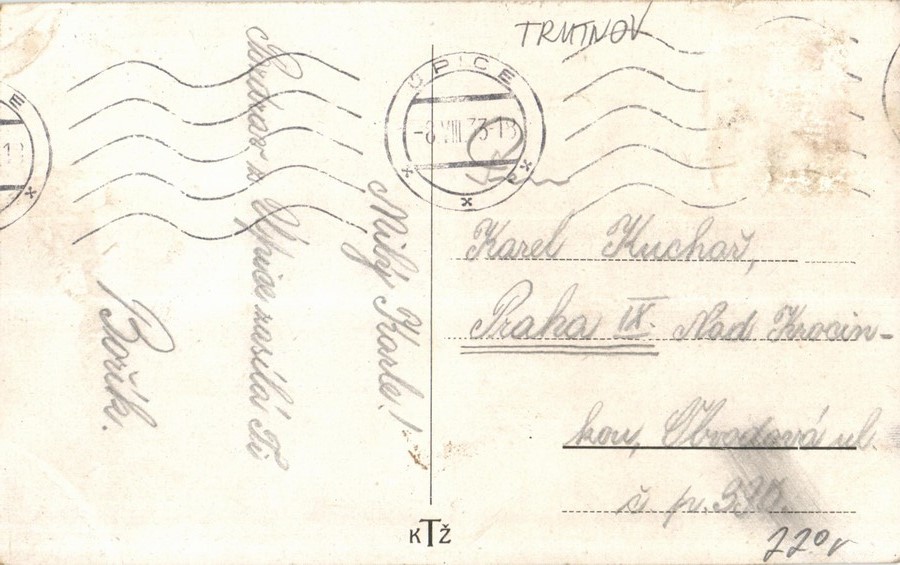 TRUTNOV
ÚPICE
-8.VIII.33-18
Milý Karle!
Pozdrav z Úpice zasílá Ti
Bořík.
Karel Kuchař,
Praha IX. Nad Krocín-
kou, Obvodová ul.
č. p.
KTŽ
220